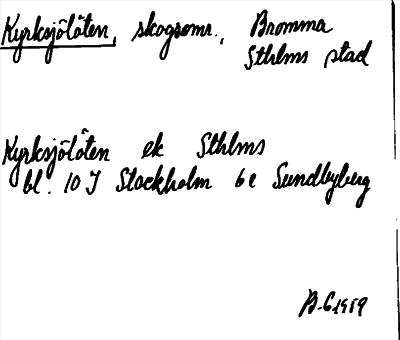 Kyrksjölöten, skogsomr., Bromma
Sthlms stad
Kyrksjölöten ek Sthlms
bl. 10 I Stockholm 6e Sundbyberg